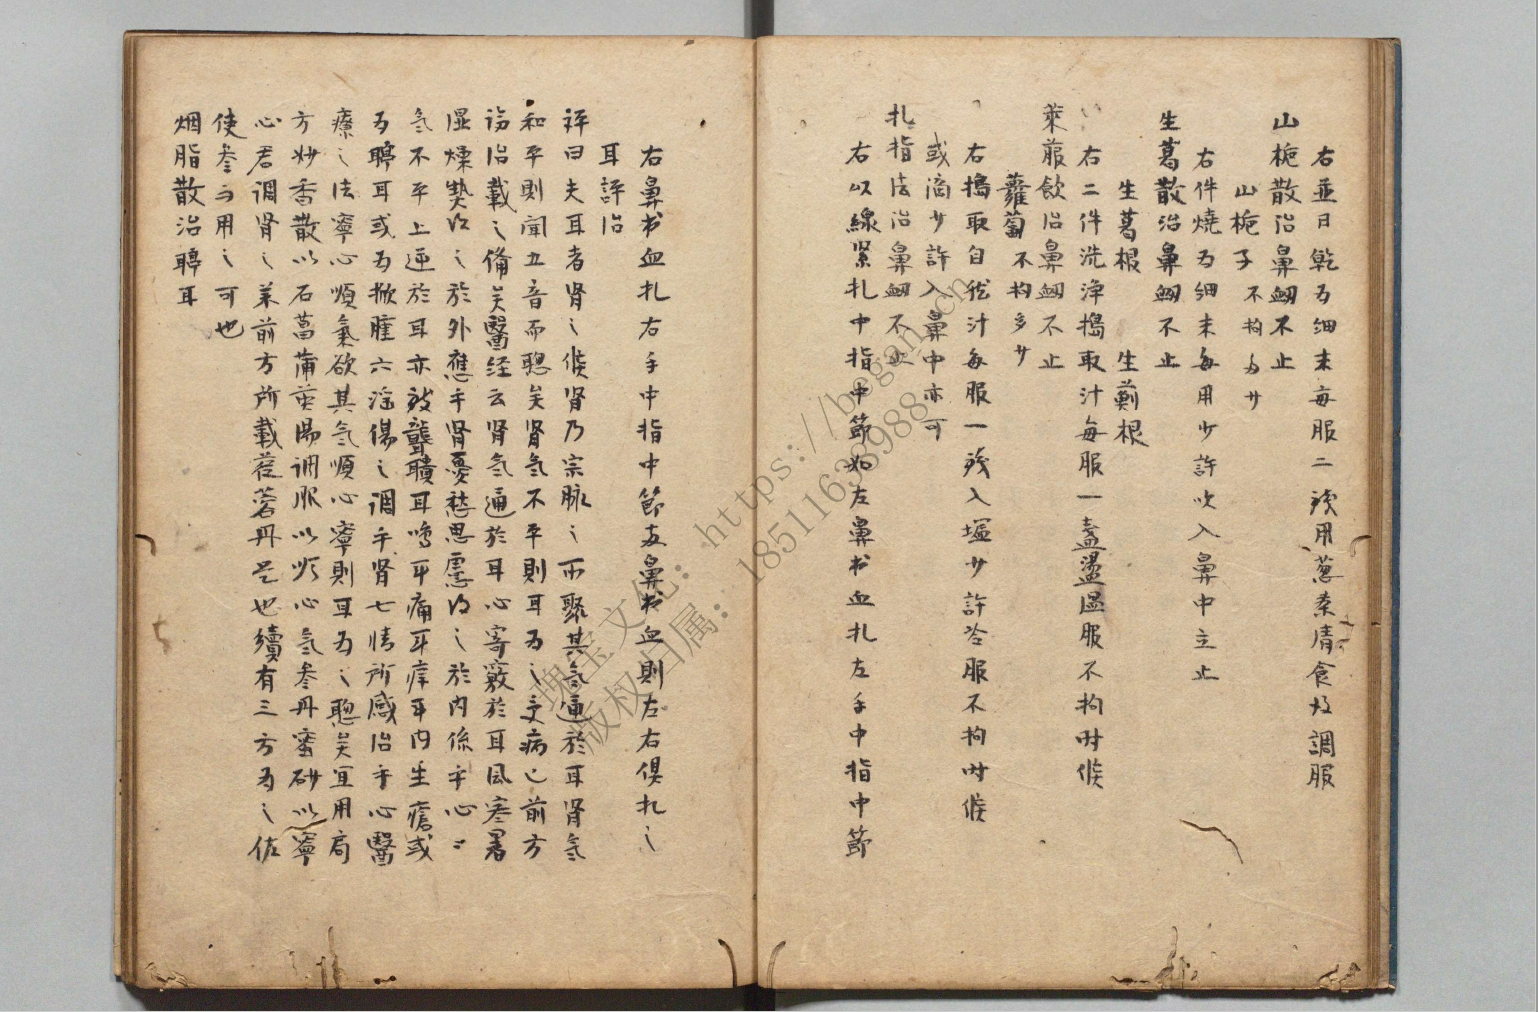 右並日乾为细末每服二錢用葱素清食后調服
山梔散治鼻衂不止
山梔子 不拘多少
右件燒为细末每用少許吹入鼻中立止
生葛散治鼻衂不止
生葛根 生薊根
右二件洗淨搗取汁每服一盞盪温服不拘时候
萊菔飲治鼻衂不止
蘿蔔 不拘多少
右搗取自然汁每服一錢入塩少許冷服不拘时候
或滴少許入鼻中亦可
札指法治鼻衂不止
右以線緊札中指中節如左鼻出血札左手中指中節
右鼻出血札右手中指中節左鼻出血則左右俱札之
耳評治
評曰夫耳者肾之候肾乃宗脉之所聚其氣通於耳肾氣
和平則闻五音而聰矣肾氣不平則耳为之受病也前方
論治載之備矣醫经云肾氣通於耳心寄竅於耳風寒暑
湿燥𤍠得之於外應乎肾憂愁思慮得之於内係乎心〻
氣不平上逆於耳亦致聾聵耳鳴耳痛耳痒耳内生瘡或
为聤耳或为掀腫六淫傷之调乎肾七情所感治乎心醫
療之法寧心順氣欲其氣順心寧則耳为之聰矣宜用局
方妙香散以石菖蒲煎湯调服以順心氣叁丹蜜砂以寧
心君调肾之薬前方所載蓯蓉丹是也續有三方为之佐
使叁而用之可也
烟脂散治聤耳
瑰宝文化: https://begam.cn
版权归属: 18511638988